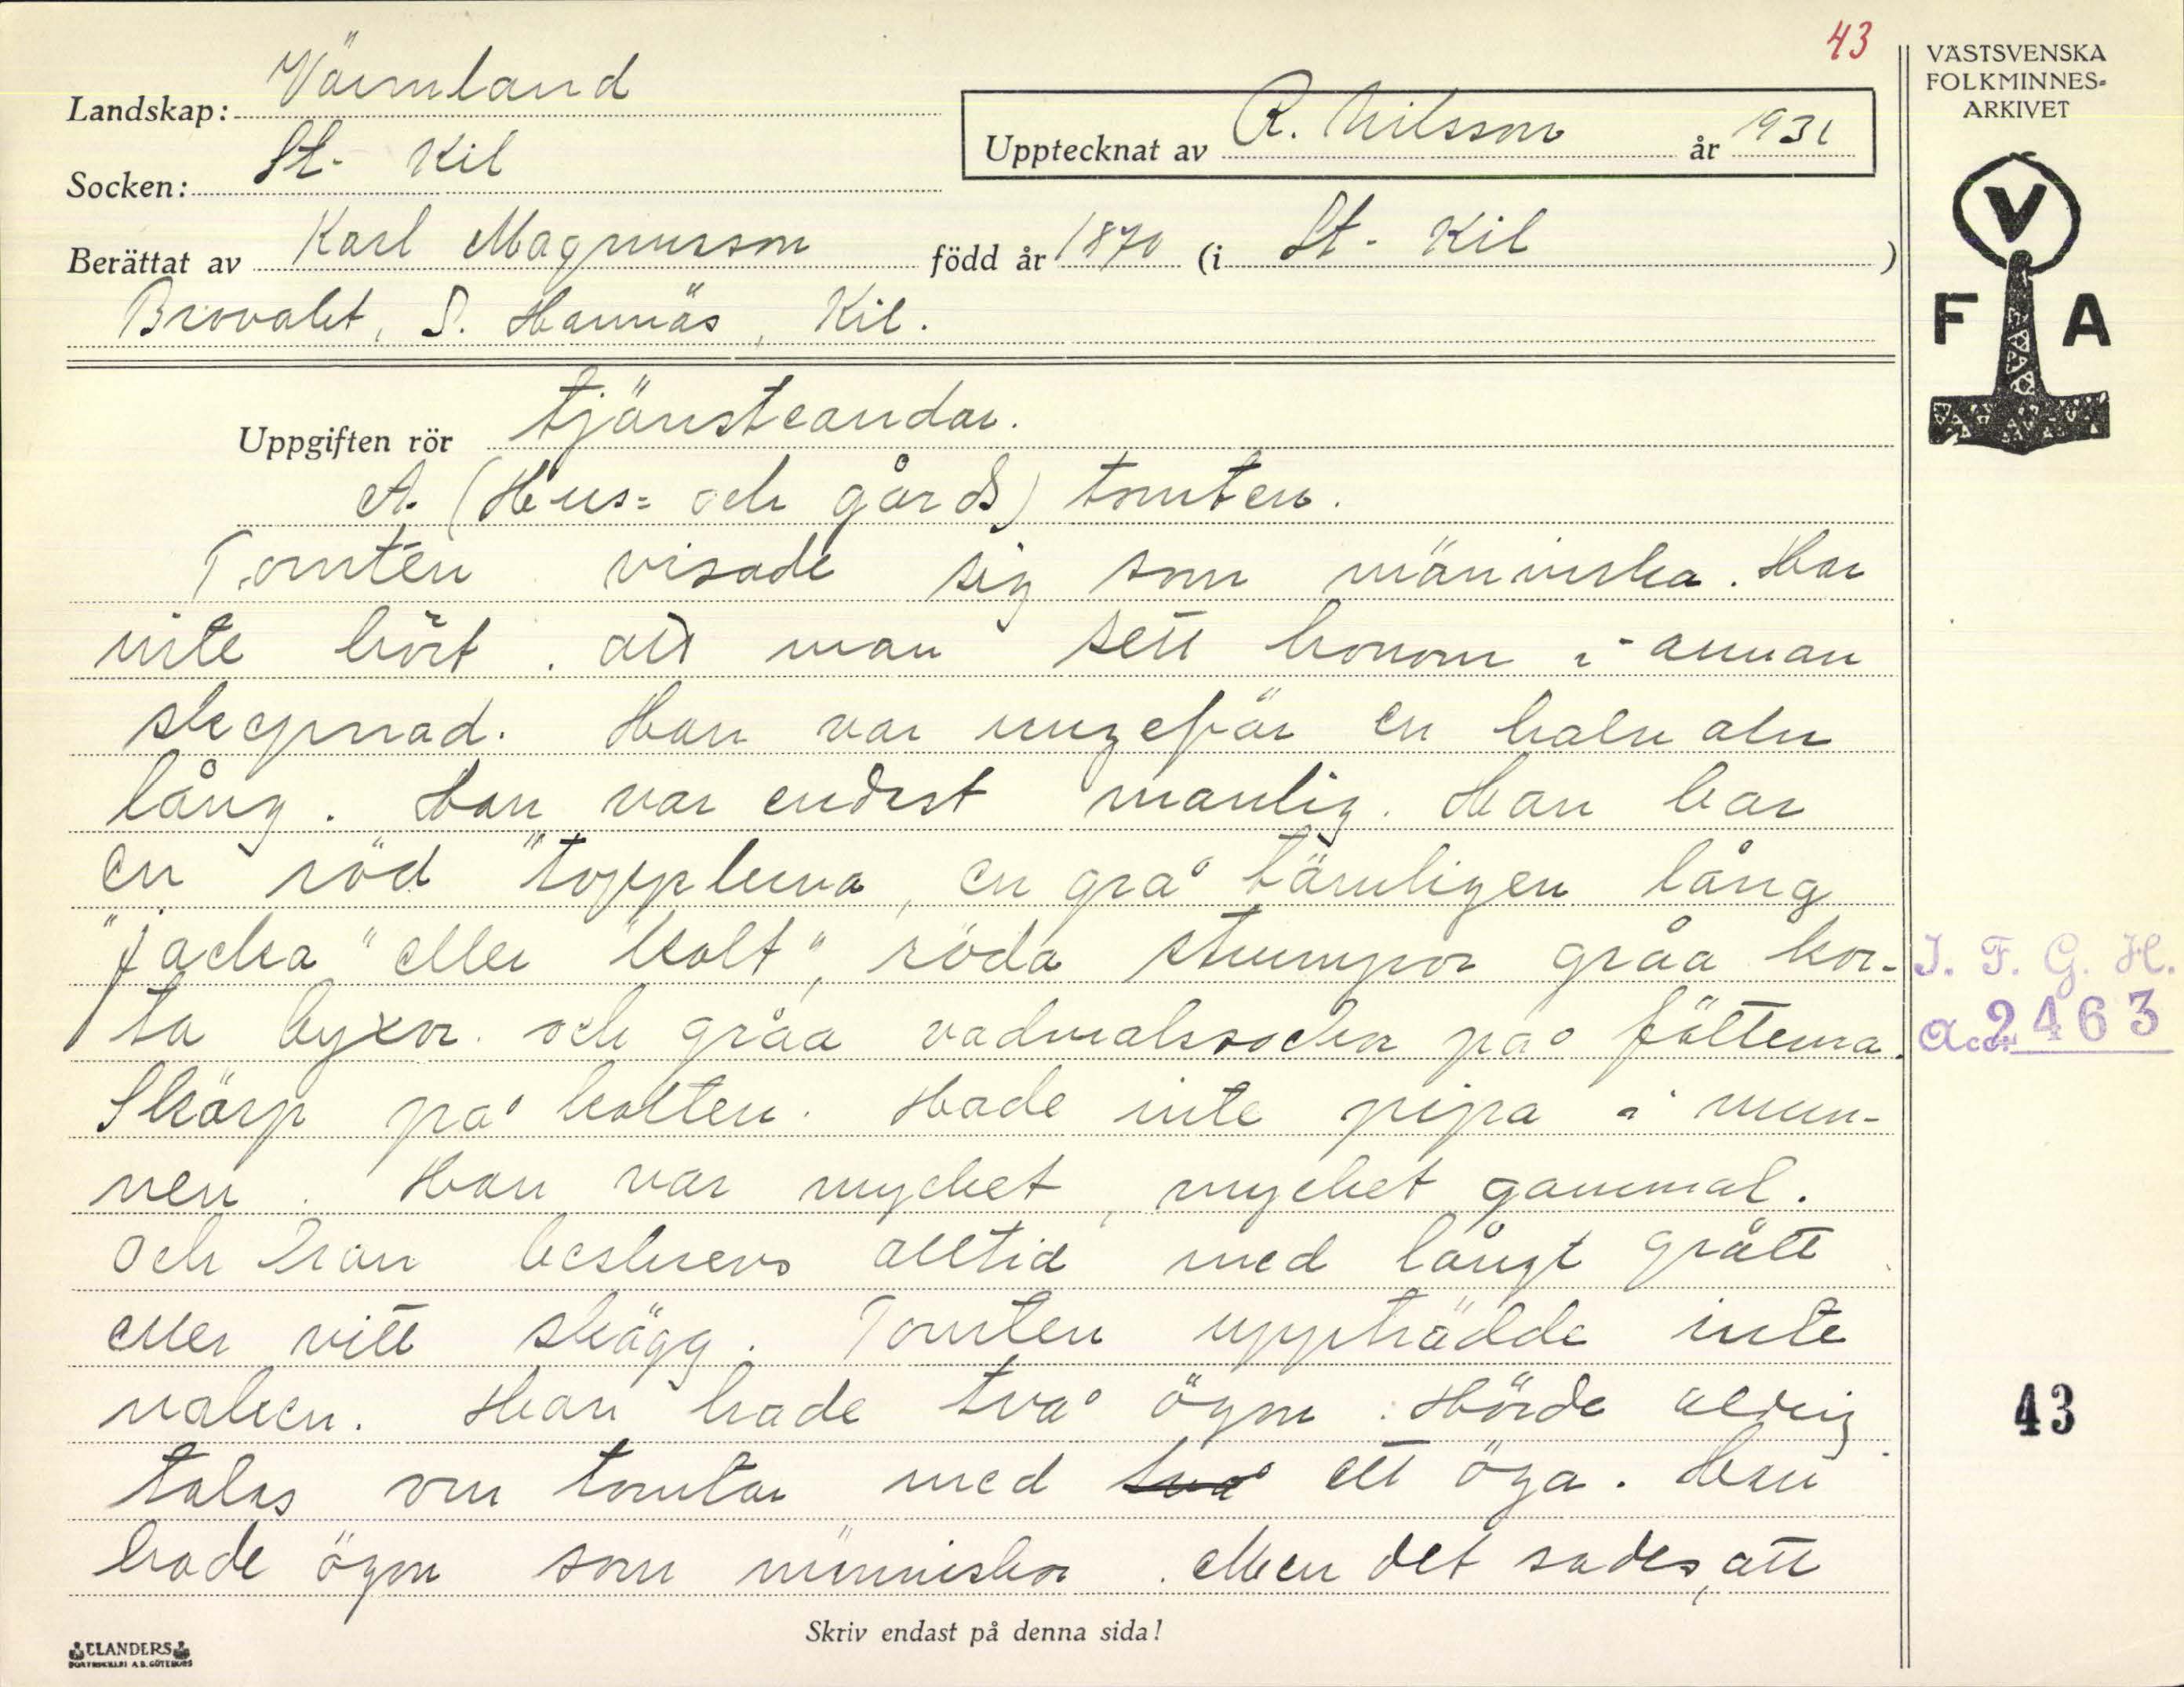 43
VÄSTSVENSKA
FOLKMINNES-
ARKIVET
V
F A
Landskap: Värmland
Socken: St. Kil
Upptecknat av R. Nilsson år 1931
Berättat av Karl Magnusson född år 1870 (i St. Kil)
Brovalet, S. Hannäs, Kil.
Uppgiften rör tjänsteandar.
A. (Hus= och gårds) tomten.
Tomten visade sig som människa. Har
inte hört att man sett honom i annan
skepnad. Han var ungefär en halv aln
lång. Han var endast manlig. Han bar
en röd "toppluva, en grå tämligen lång
"jacka" eller "kolt", röda strumpor gråa kor-
ta byxor och gråa vadmalssockor på fötterna.
Skärp på kolten. Hade inte pipa i mun-
nen. Han var mycket, mycket gammal.
Och han beskrevs alltid med långt grått
eller vitt skägg. Tomten uppträdde inte
naken. Han hade två ögon. Hörde aldrig
talas om tomtar med två ett öga. Han
hade ögon som människor. Men det sades, att
Skriv endast på denna sida!
I. F. G. H.
Acc. 2463
43
ELANDERS
BOKTRYCKERI A.B. GÖTEBORG